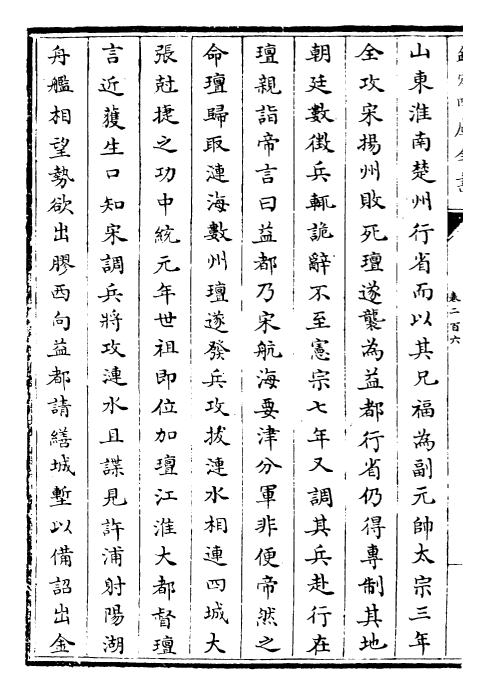 卷二百六
山東淮南楚州行省而以其兄福為副元帥太宗三年
全攻宋揚州敗死璮遂襲為益都行省仍得專制其地
朝廷數徴兵輒詭辭不至憲宗七年又調其兵赴行在
璮親詣帝言曰益都乃宋航海要津分軍非便帝然之
命璮歸取漣海數州璮遂發兵攻拔漣水相連四城大
張尅捷之功中統元年世祖即位加璮江淮大都督璮
言近獲生口知宋調兵將攻漣水且諜見許浦射陽湖
舟艦相望勢欲出膠西向益都請繕城塹以備詔出金